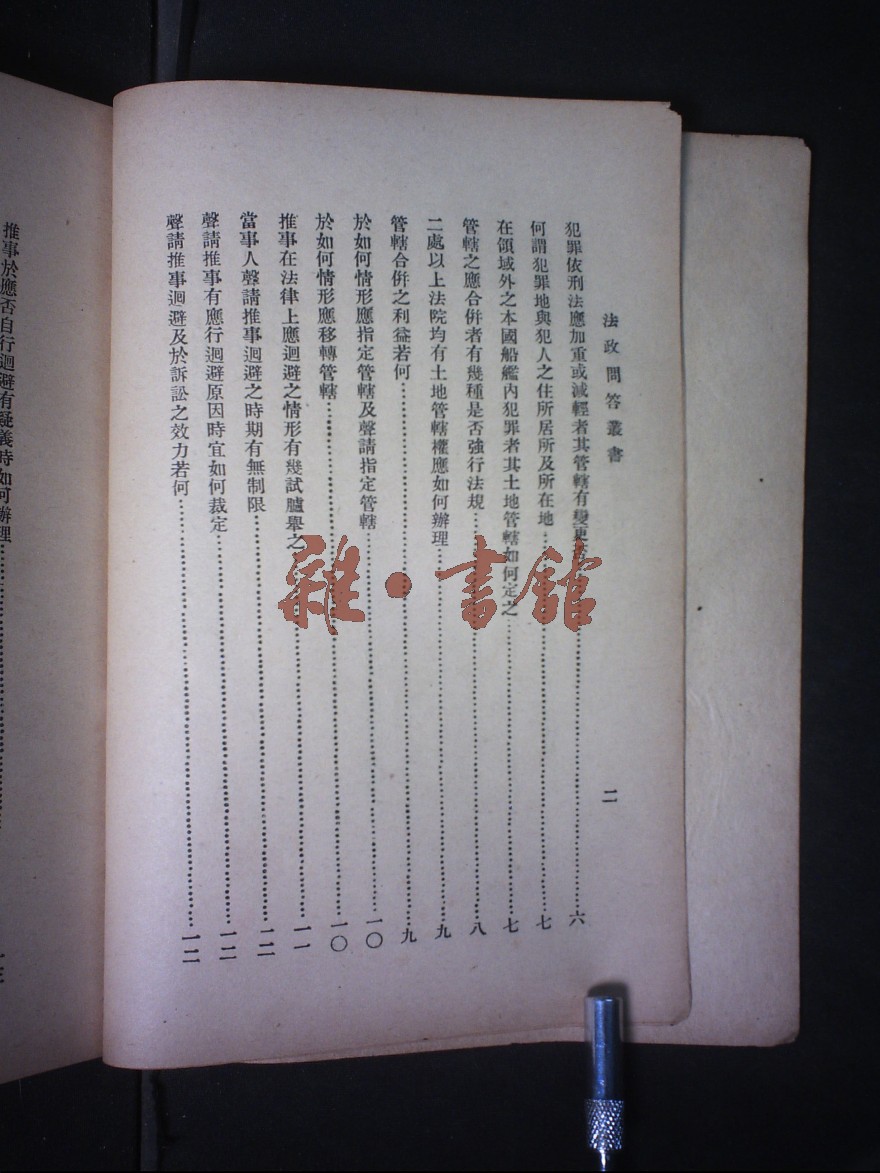 法政問答叢書
二
犯罪依刑法應加重或減輕者其管轄有變更否……六
何謂犯罪地與犯人之住所居所及所在地……七
在領域外之本國船艦內犯罪者其土地管轄如何定之……七
管轄之應合併者有幾種是否強行法規……八
二處以上法院均有土地管轄權應如何辦理……九
管轄合併之利益若何……九
於如何情形應指定管轄及聲請指定管轄……一〇
於如何情形應移轉管轄……一〇
推事在法律上應迴避之情形有幾試臚舉之……一一
當事人聲請推事迴避之時期有無制限……一二
聲請推事有應行迴避原因時宜如何裁定……一二
聲請推事迴避及於訴訟之效力若何……一二
推事於應否自行迴避有疑義時如何辦理……一三
雜·書館